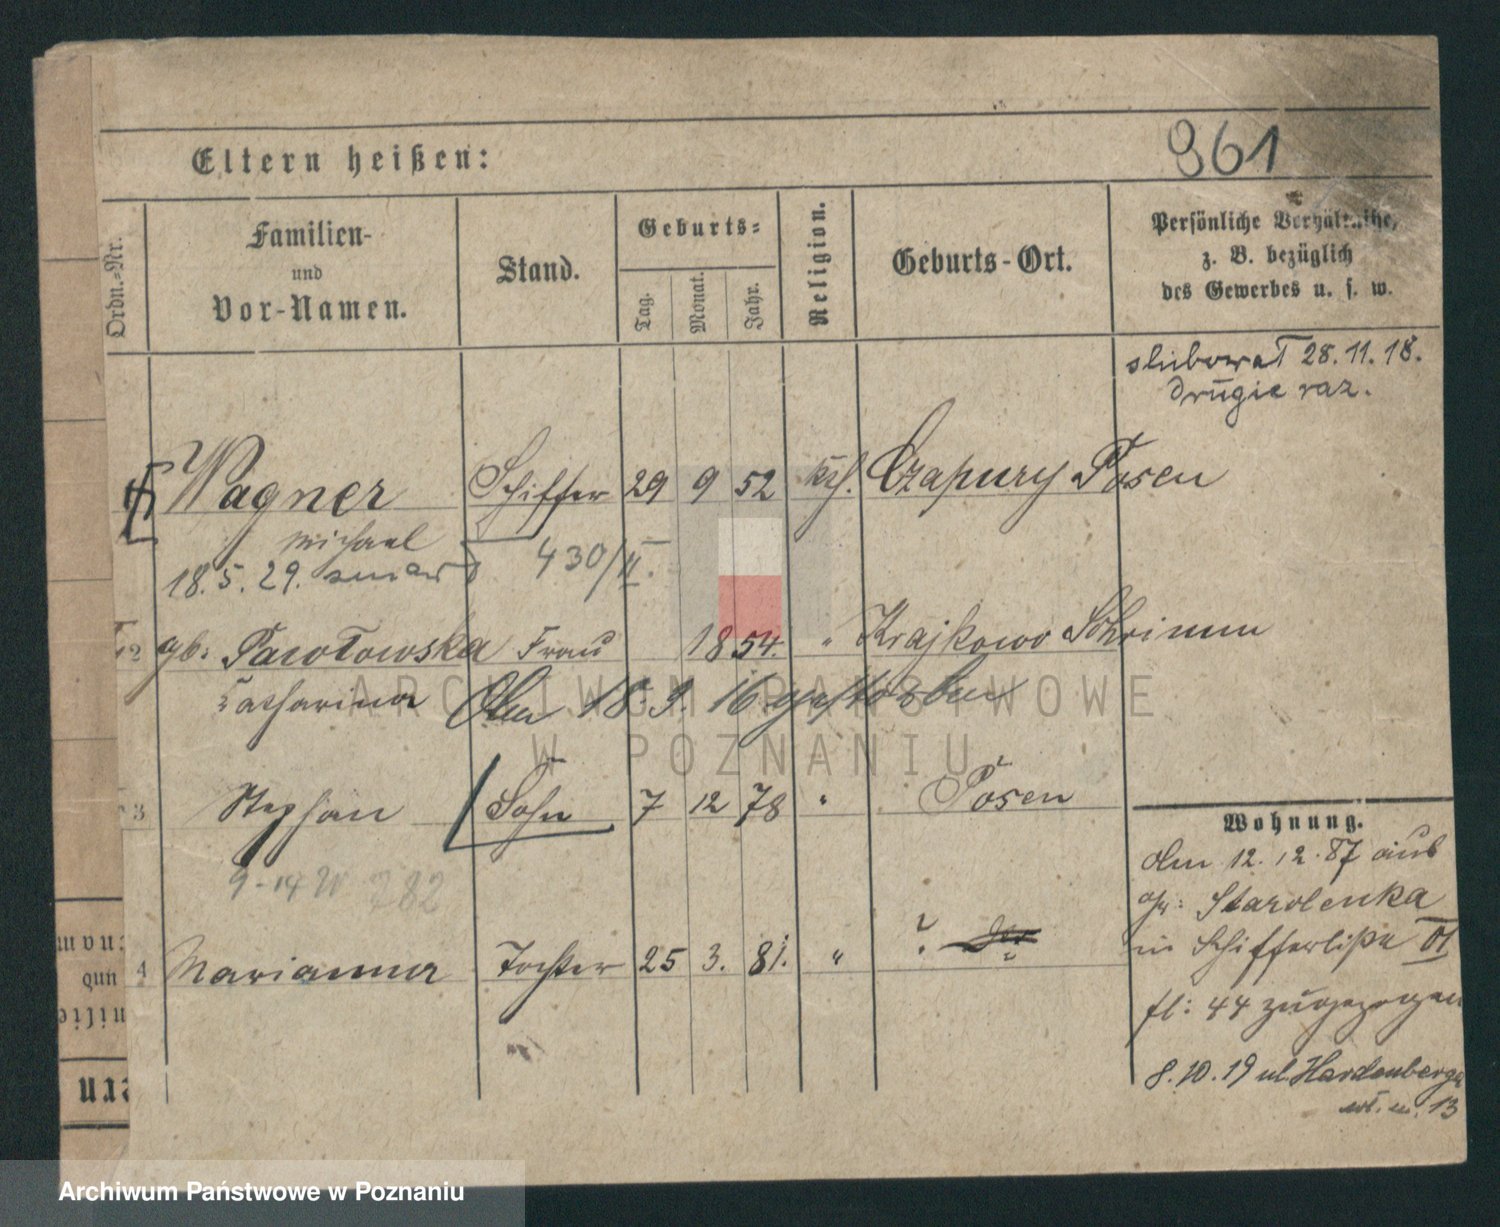 961
Eltern heißen:
Ordn.-Nr.
Familien-
und
Vor-Namen.
Stand.
Geburts-
Tag.
Monat.
Jahr.
Religion.
Geburts-Ort.
Persönliche Verhältnisse,
z. B. bezüglich
des Gewerbes u. s. w.
slubował 28.11.18.
drugie raz.
Wagner Schiffer 29 9 52 kth. Czapury Posen
Michael
18.5.29. zmarł 430/II.
2 gb: Pawłowska Frau 1854. " Krajkowo Schrimm
Catharina Am 18.9.16 gestorben
3 Stephan Sohn 7 12 78 " Posen
9-14 W 282
4 Marianna Tochter 25 3. 81. " ?
Wohnung.
Am 12.12.87 aus
Starolenka
in Schifferliste VI
fl: 44 zugezogen
8.10.19 ul. Hardenberga
13
ARCHIWUM PAŃSTWOWE
W POZNANIU
Archiwum Państwowe w Poznaniu